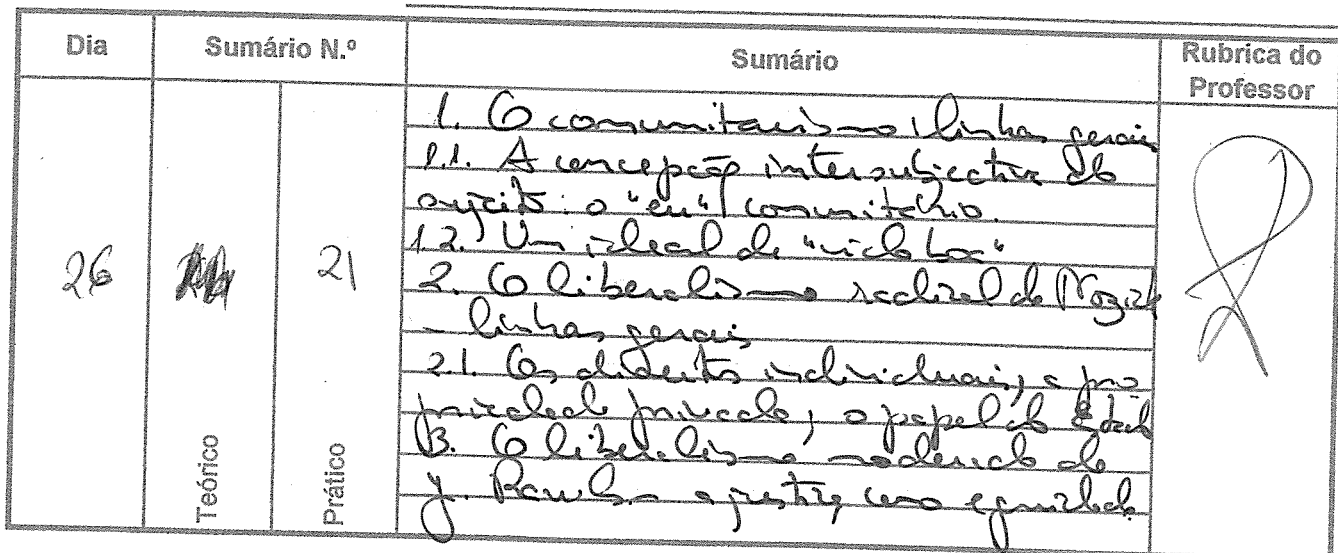 Dia Sumário N.º Sumário Rubrica do Professor
26 21
Teórico Prático
1. O comunitarismo: linhas gerais
1.1. A concepção intersubjectiva do
sujeito: o "eu" comunitário.
1.2. Um ideal de "vida boa"
2. O liberalismo radical de Nozick
- linhas gerais
2.1. Os direitos individuais, a pro
priedade privada, o papel do Estado
3. O liberalismo moderado de
J. Rawls - a justiça como equidade